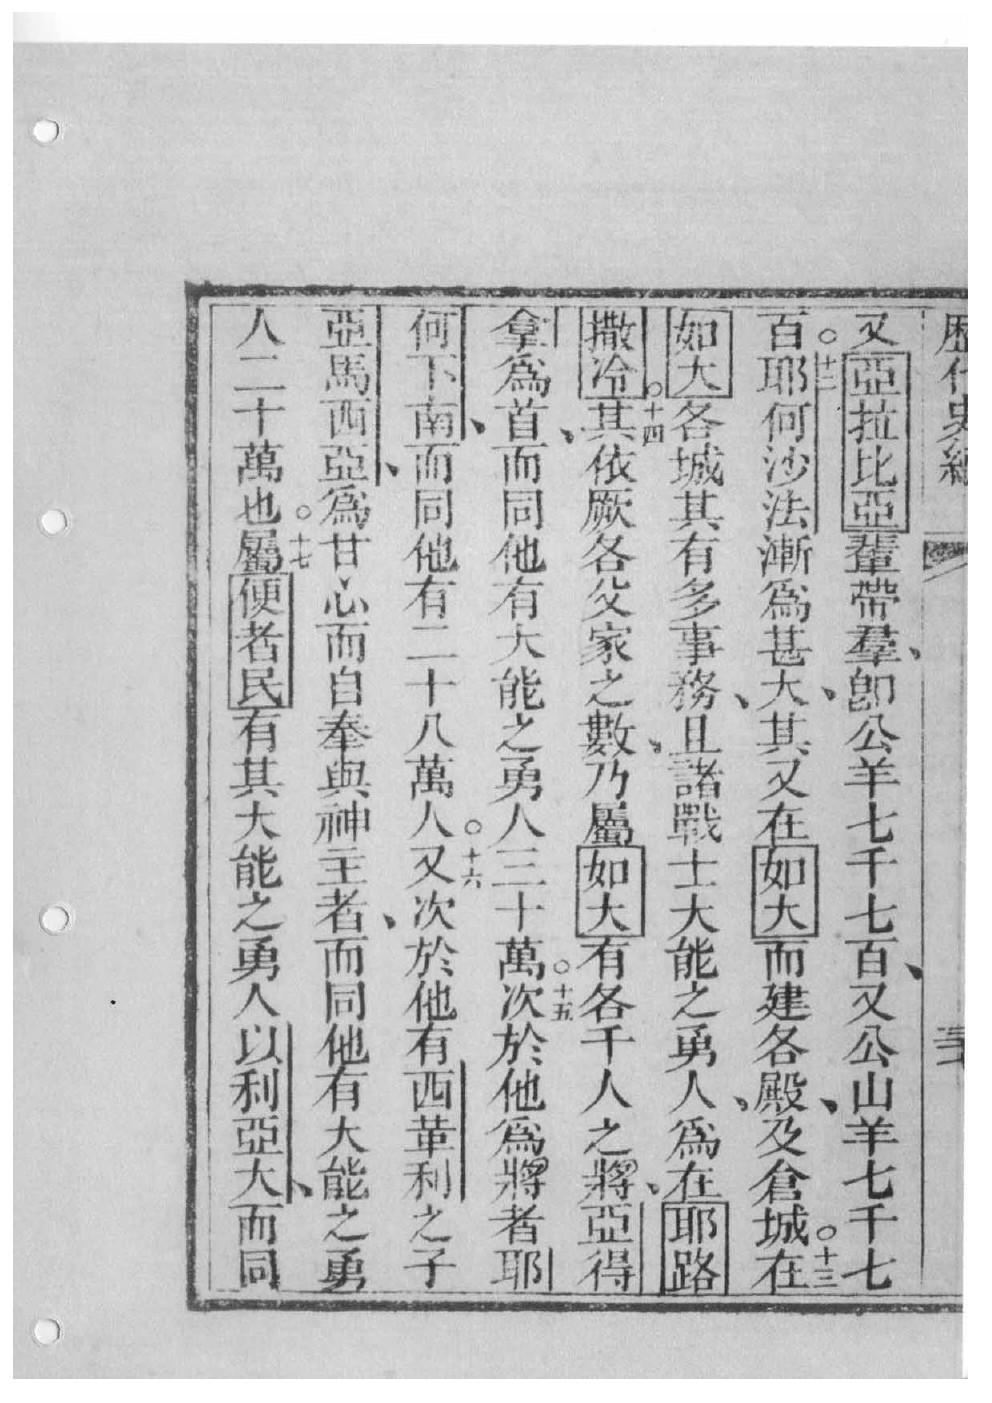 歷代史紀
又亞拉比亞輩帶羣、卽公羊七千七百、又公山羊七千七
百○十二耶何沙法漸爲甚大、其又在如大而建各殿、及倉城○十三在
如大各城其有多事務、且諸戰士大能之勇人、爲在耶路
撒冷○十四其依厥各父家之數、乃屬如大有各千人之將、亞得
拿爲首、而同他有大能之勇人三十萬○十五次於他爲將者耶
何下南、而同他有二十八萬人○十六又次於他有西革利之子
亞馬西亞、爲甘心而自奉與神主者、而同他有大能之勇
人二十萬也○十七屬便者民有其大能之勇人以利亞大、而同